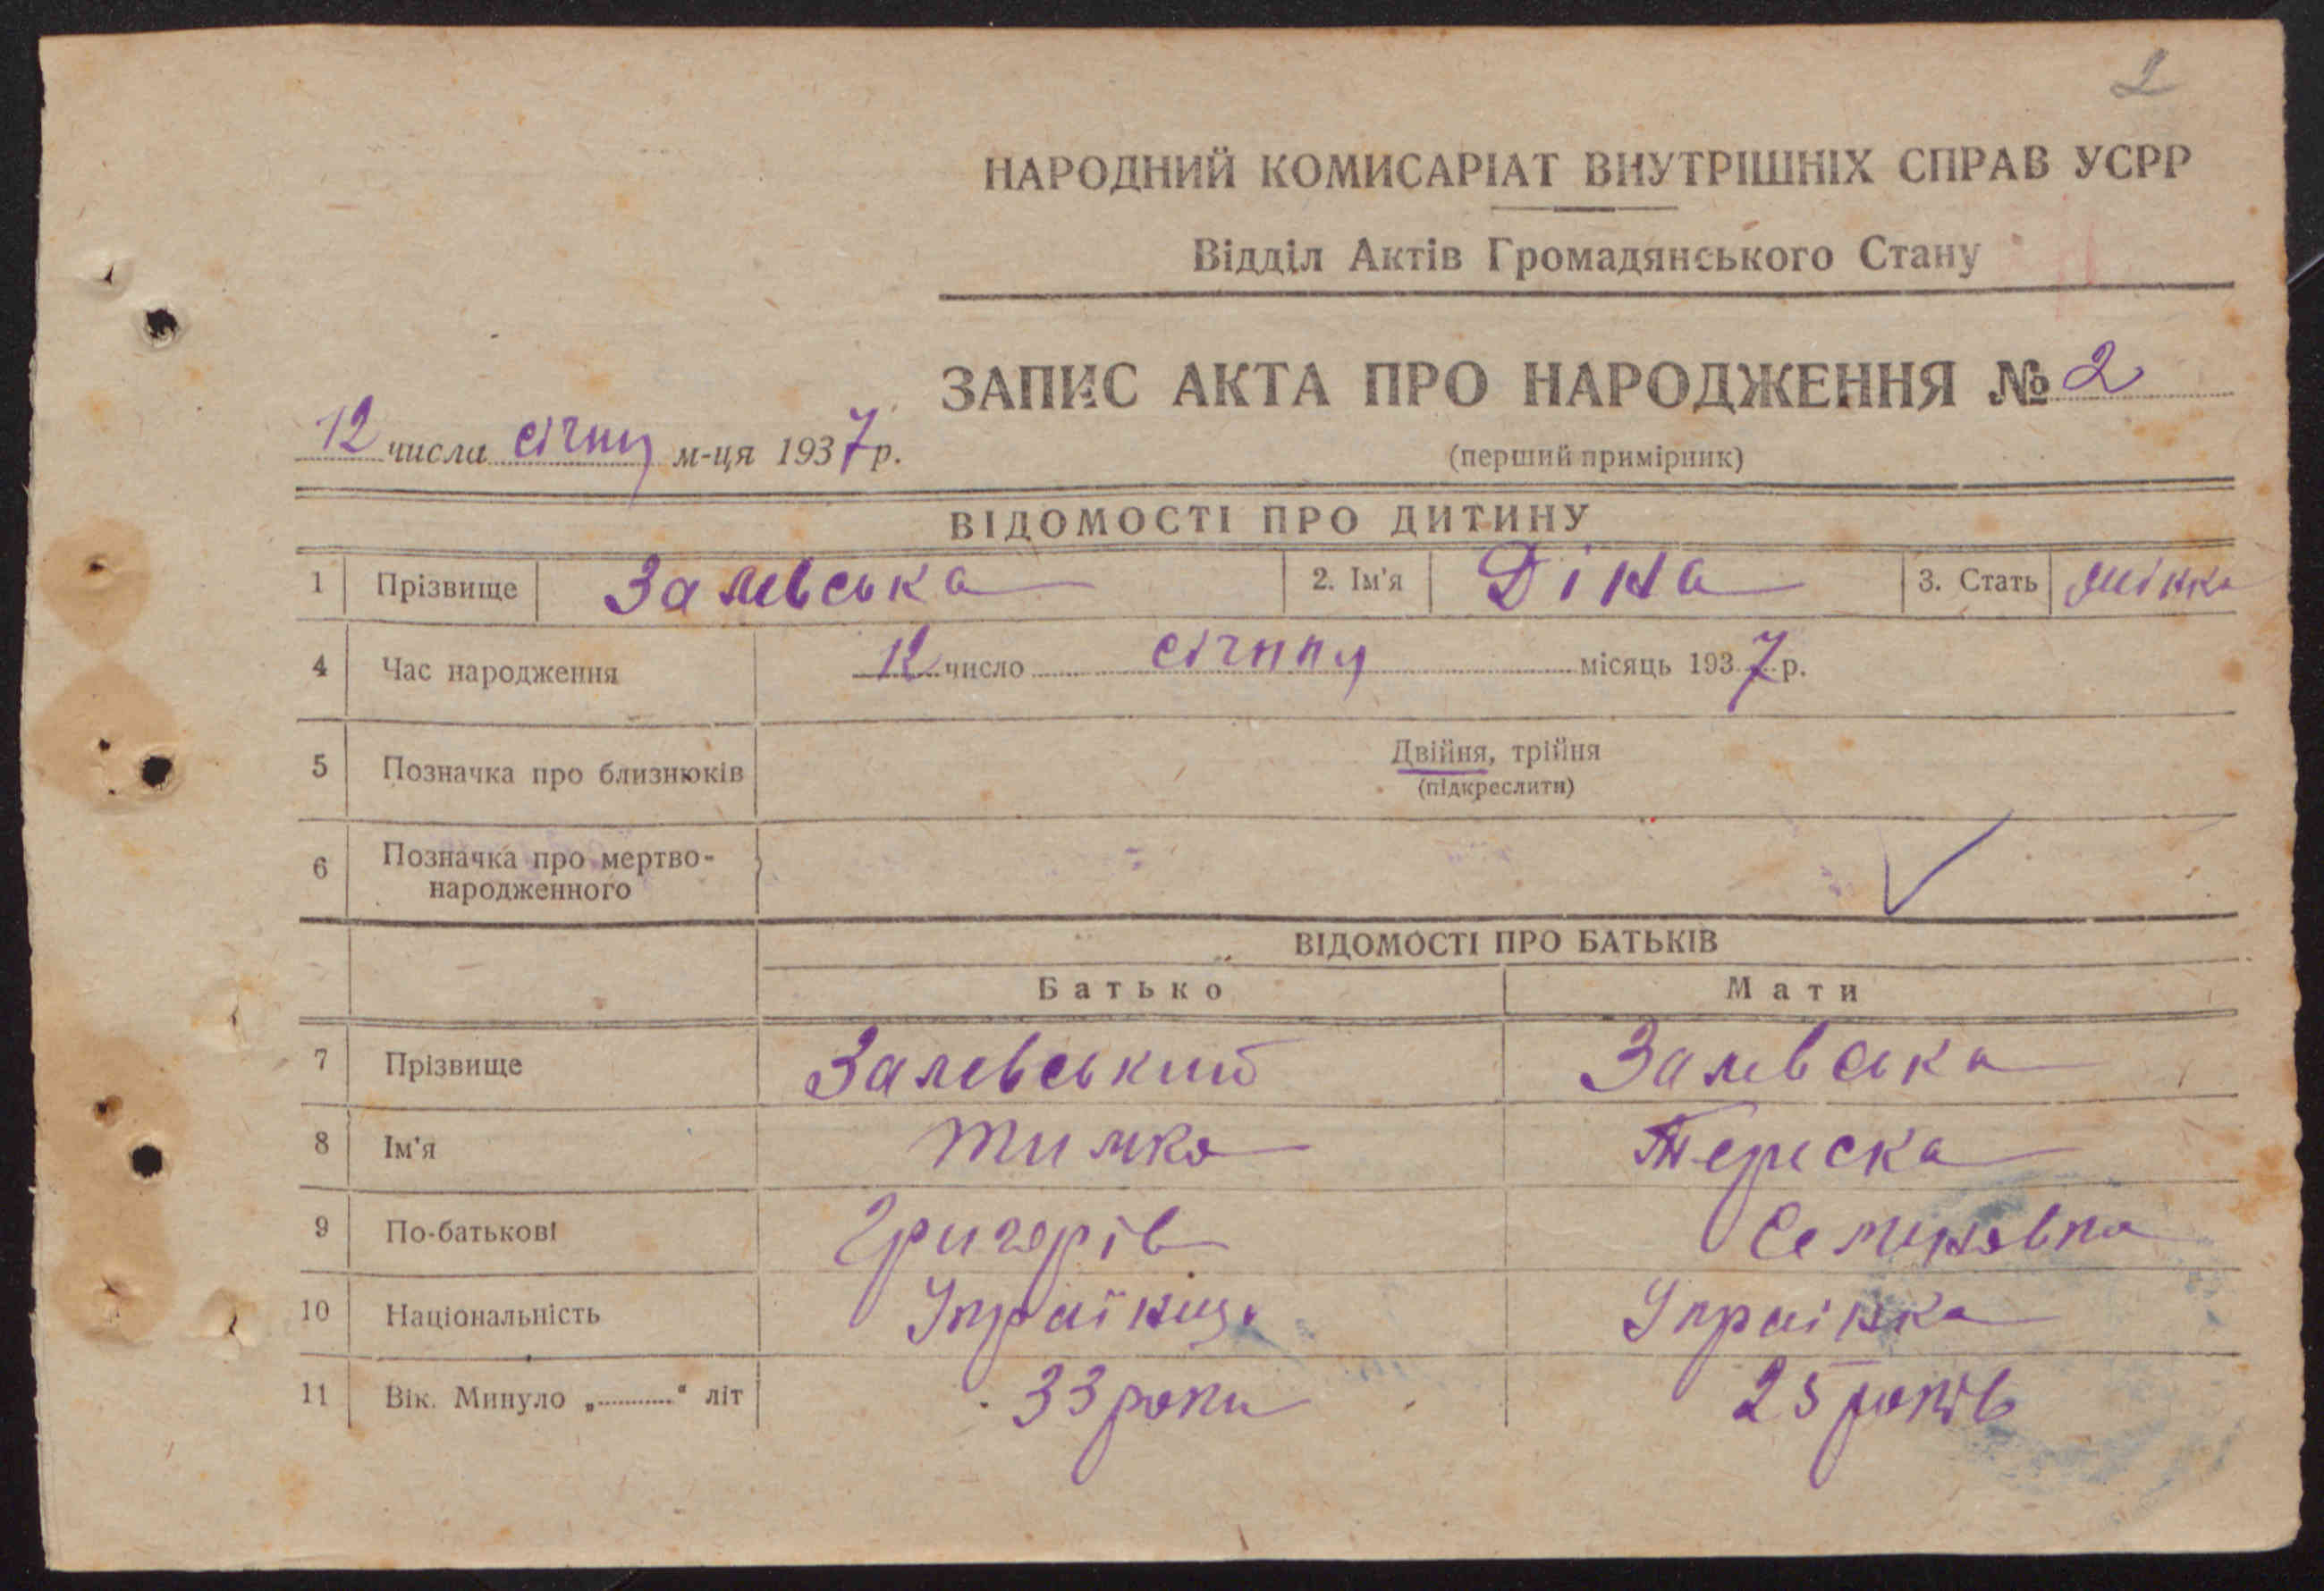 2
НАРОДНИЙ КОМИСАРІАТ ВНУТРІШНІХ СПРАВ УСРР
Відділ Актів Громадянського Стану
ЗАПИС АКТА ПРО НАРОДЖЕННЯ № 2
12 числа січня м-ця 1937 р.
(перший примірник)
ВІДОМОСТІ ПРО ДИТИНУ
1 Прізвище Залевська 2. Ім'я Діна 3. Стать жінка
4 Час народження 12 число січня місяць 1937 р.
5 Позначка про близнюків Двійня, трійня
(підкреслити)
6 Позначка про мертво-
народженного
ВІДОМОСТІ ПРО БАТЬКІВ
Батько Мати
7 Прізвище Залевський Залевська
8 Ім'я Тимко Териска
9 По-батькові Григорів Семенівна
10 Національність Українец Українка
11 Вік. Минуло „............“ літ 33 роки 25 років